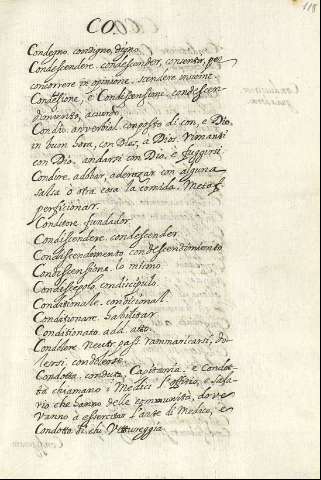 118
CO.
Condegno. condigno, digno.
Condescendere. condescender, consentir, per
concorrere in opinione. scendere insieme
Condessione, e Condescensione. condescen-
dimiento, acuerdo.
Condio. adverbial. composto di con, e Dio.
in buon hora, con Diaz, a Dios. rimanti
con Dio. andarsi con Dio, è fuggirsi.
Condire. adobar, aderezar con alguna
salsa ò otra cosa la comida. Metaf.
perficionar.
Conditore. fundador.
Condiscendere. condescender
Condiscendimento. condescendimiento
Condiscensione. lo mismo.
Condiscepolo. condiscipulo.
Conditionale. condicional.
Conditionare. habilitar
Conditionato. add. atto.
Condolere. Neutr. pass. rammaricarsi, do-
lersi, condolerse.
Condotta. conduta, Capitania. e Condot-
ta chiamano i Medici l'offitio, e sala-
rio che hanno delle communità, dove
vanno à essercitar l'arte di Medico, e
Condotta di chi Vettureggia.